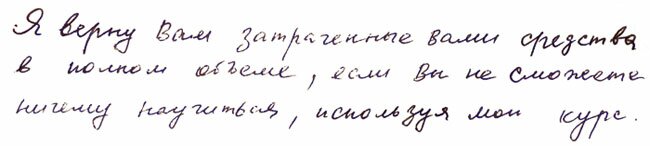 Я верну Вам затраченные вами средства
в полном объеме, если Вы не сможете
ничему научиться, используя мой курс.